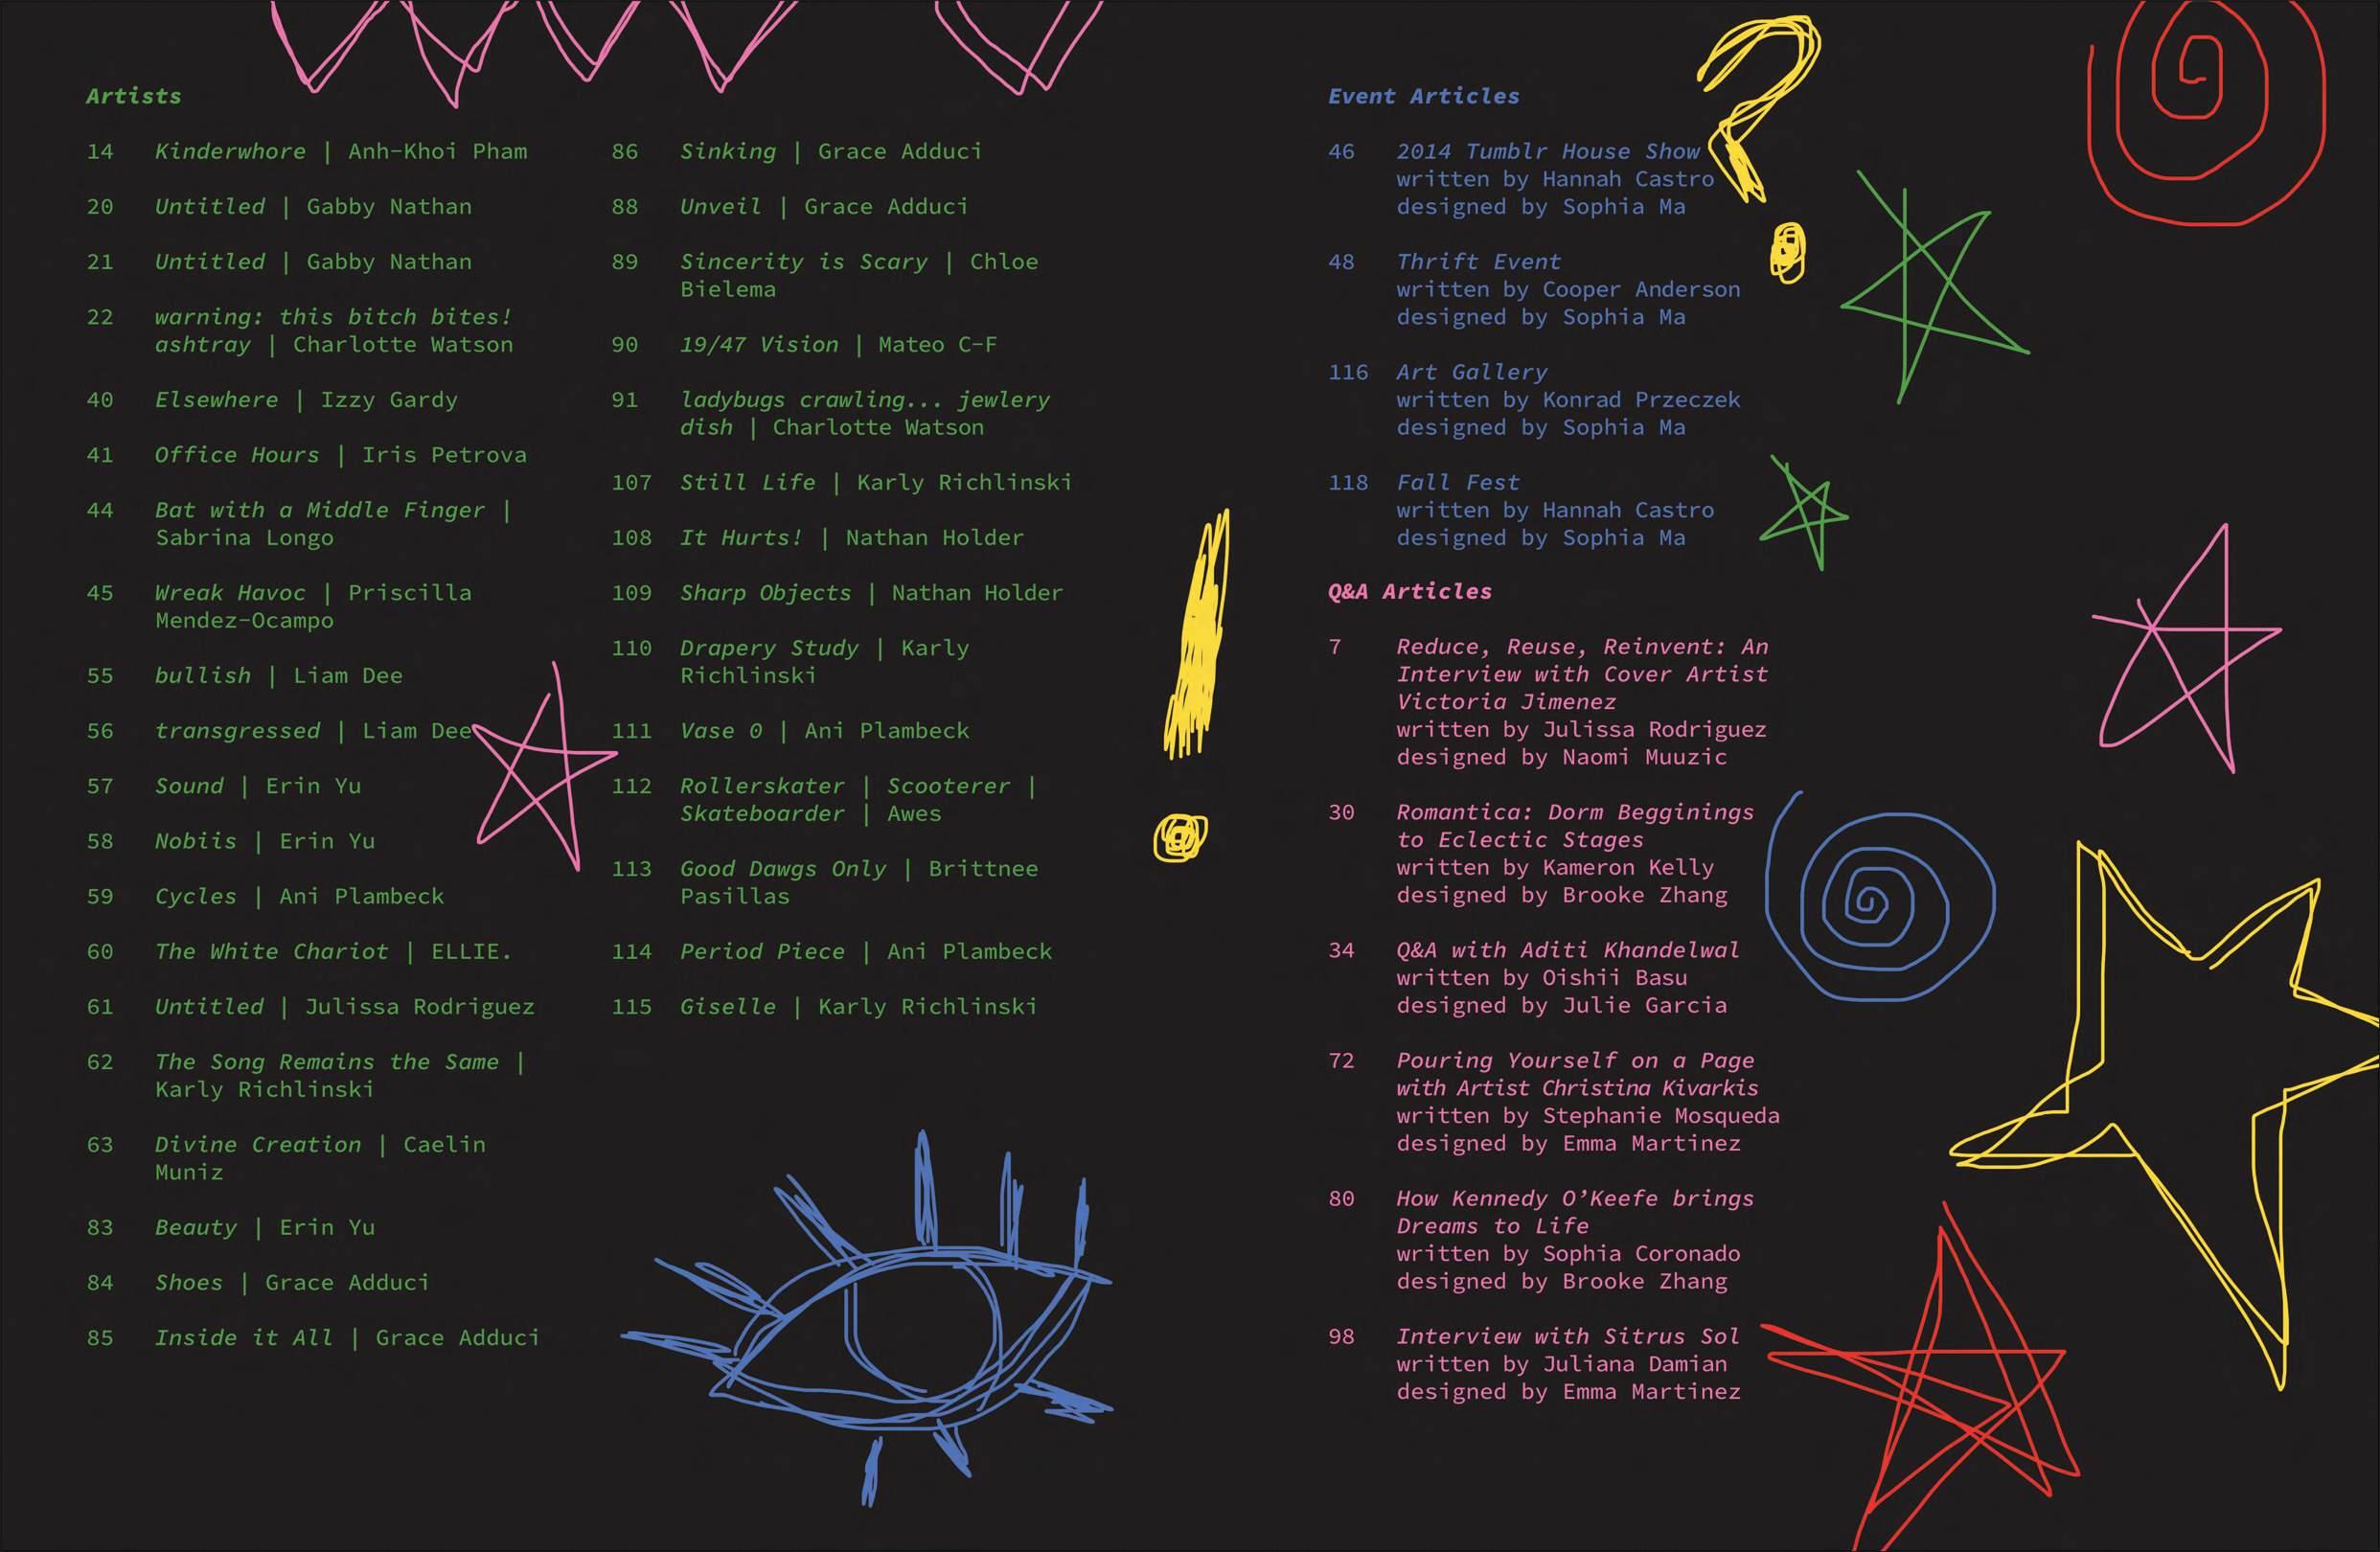 Artists
14 Kinderwhore | Anh-Khoi Pham
20 Untitled | Gabby Nathan
21 Untitled | Gabby Nathan
22 warning: this bitch bites!
ashtray | Charlotte Watson
40 Elsewhere | Izzy Gardy
41 Office Hours | Iris Petrova
44 Bat with a Middle Finger |
Sabrina Longo
45 Wreak Havoc | Priscilla
Mendez-Ocampo
55 bullish | Liam Dee
56 transgressed | Liam Dee
57 Sound | Erin Yu
58 Nobiis | Erin Yu
59 Cycles | Ani Plambeck
60 The White Chariot | ELLIE.
61 Untitled | Julissa Rodriguez
62 The Song Remains the Same |
Karly Richlinski
63 Divine Creation | Caelin
Muniz
83 Beauty | Erin Yu
84 Shoes | Grace Adduci
85 Inside it All | Grace Adduci
86 Sinking | Grace Adduci
88 Unveil | Grace Adduci
89 Sincerity is Scary | Chloe
Bielema
90 19/47 Vision | Mateo C-F
91 ladybugs crawling... jewlery
dish | Charlotte Watson
107 Still Life | Karly Richlinski
108 It Hurts! | Nathan Holder
109 Sharp Objects | Nathan Holder
110 Drapery Study | Karly
Richlinski
111 Vase 0 | Ani Plambeck
112 Rollerskater | Scooterer |
Skateboarder | Awes
113 Good Dawgs Only | Brittnee
Pasillas
114 Period Piece | Ani Plambeck
115 Giselle | Karly Richlinski
Event Articles
46 2014 Tumblr House Show
written by Hannah Castro
designed by Sophia Ma
48 Thrift Event
written by Cooper Anderson
designed by Sophia Ma
116 Art Gallery
written by Konrad Przeczek
designed by Sophia Ma
118 Fall Fest
written by Hannah Castro
designed by Sophia Ma
Q&A Articles
7 Reduce, Reuse, Reinvent: An
Interview with Cover Artist
Victoria Jimenez
written by Julissa Rodriguez
designed by Naomi Muuzic
30 Romantica: Dorm Begginings
to Eclectic Stages
written by Kameron Kelly
designed by Brooke Zhang
34 Q&A with Aditi Khandelwal
written by Oishii Basu
designed by Julie Garcia
72 Pouring Yourself on a Page
with Artist Christina Kivarkis
written by Stephanie Mosqueda
designed by Emma Martinez
80 How Kennedy O’Keefe brings
Dreams to Life
written by Sophia Coronado
designed by Brooke Zhang
98 Interview with Sitrus Sol
written by Juliana Damian
designed by Emma Martinez